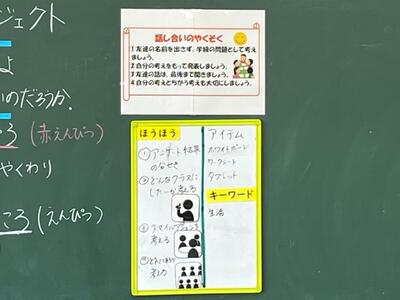 ジェクト
よ
いのだろうか。
ろ(赤えんぴつ)
やくわり
ころ(えんぴつ)
話し合いのやくそく
1 友達の名前を出さず、学級の問題として考え
ましょう。
2 自分の考えをもって発表しましょう。
3 友達の話は、最後まで聞きましょう。
4 自分の考えとちがう考えも大切にしましょう。
ほうほう
①アンケート結果
の分せき
②どんなクラスに
したいか考える
③スマイルプランを
考える
④
アイテム
ホワイトボード
ワークシート
タブレット
キーワード
生活